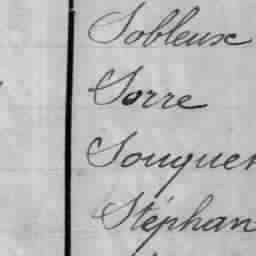 Sobleux
Sorre
Souquet
Stéphan